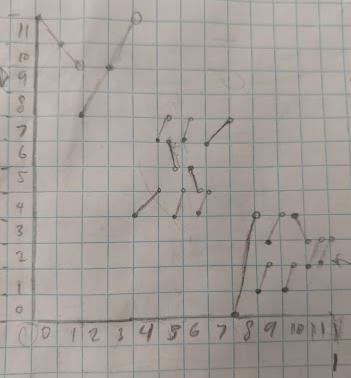 11
10
9
8
7
6
5
4
3
2
1
0
0 1 2 3 4 5 6 7 8 9 10 11
1